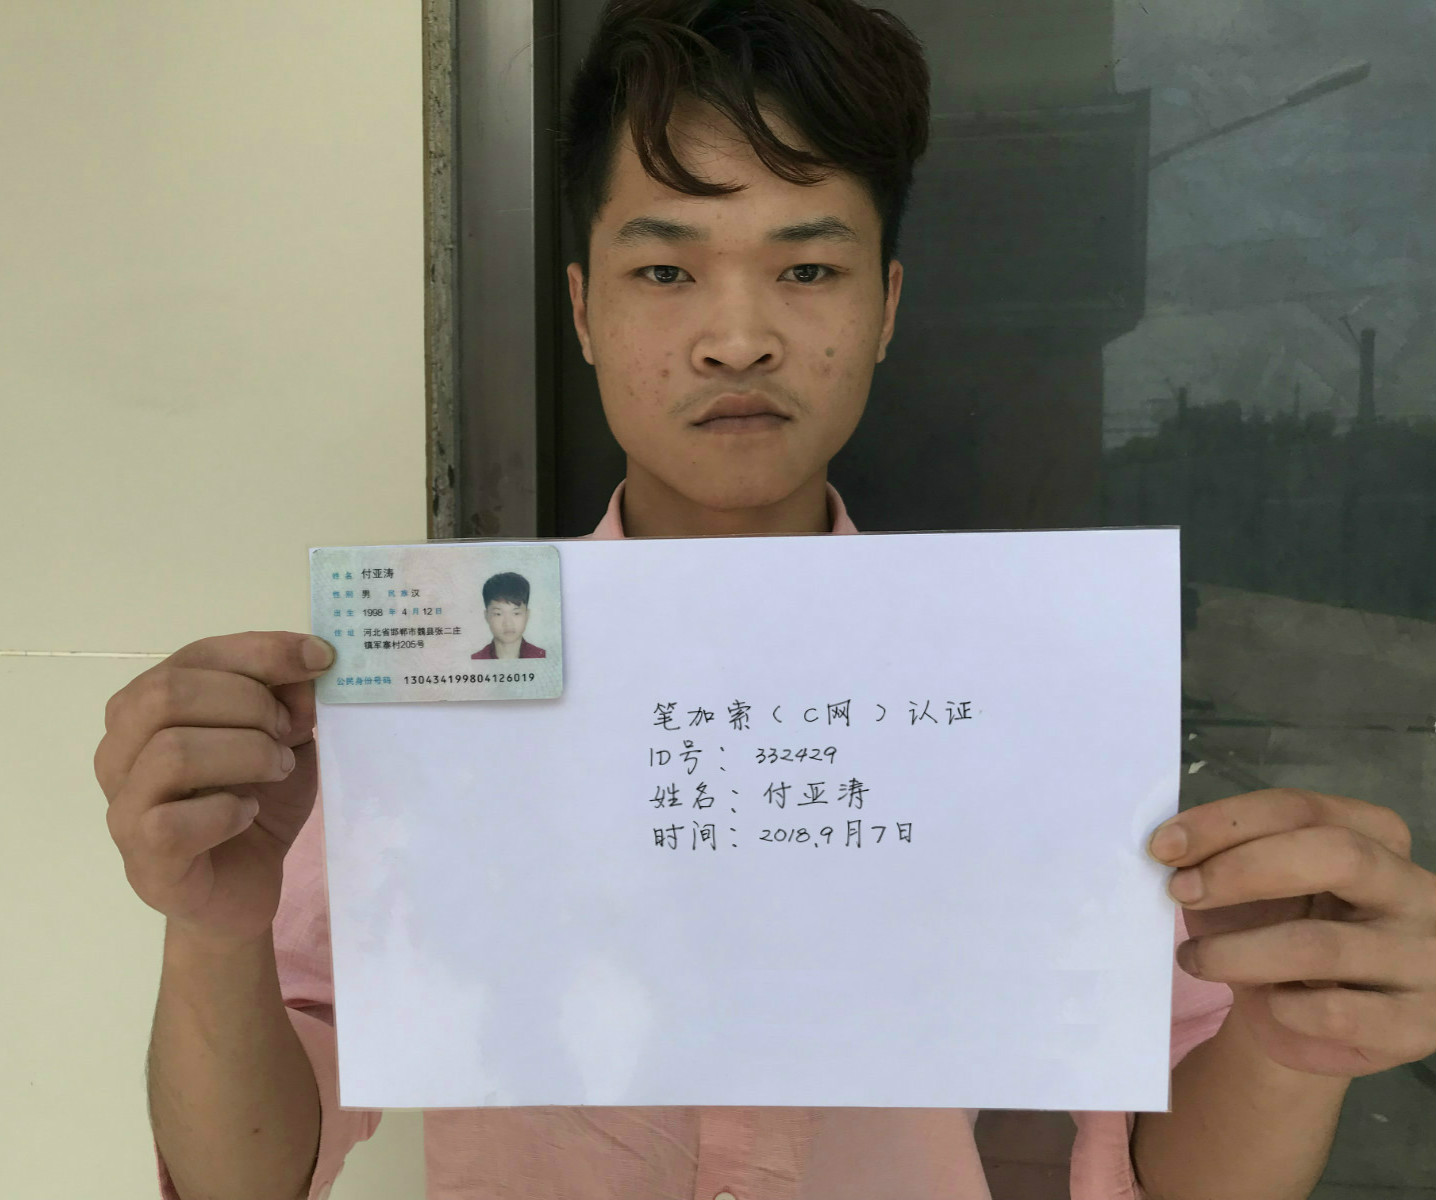 姓名 付亚涛
性别 男 民族 汉
出生 1998 年 4 月 12 日
住址 河北省邯郸市魏县张二庄
镇军寨村205号
公民身份号码 130434199804126019
笔加索（C网）认证
ID号：332429
姓名：付亚涛
时间：2018.9月7日